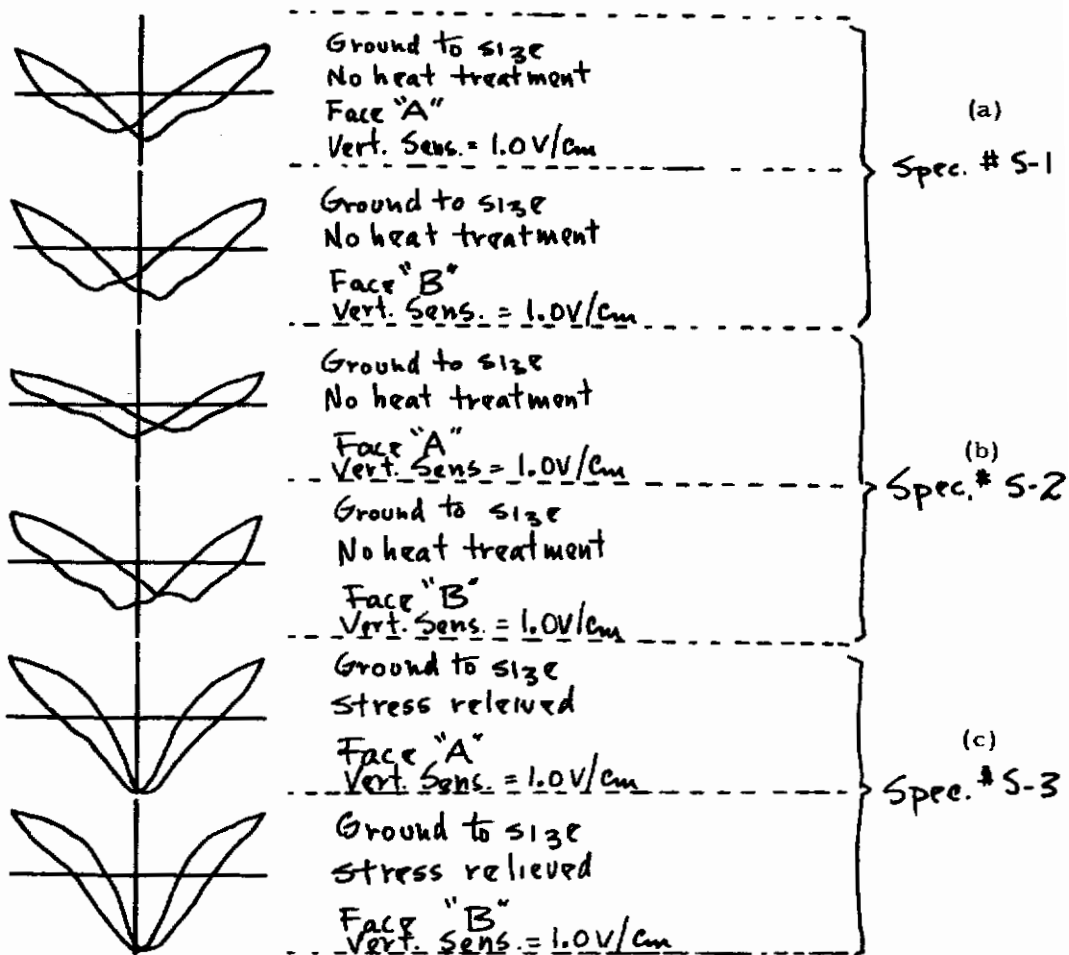 Ground to size
No heat treatment
Face "A"
Vert. Sens. = 1.0V/cm
(a)
Spec. # S-1
Ground to size
No heat treatment
Face "B"
Vert. Sens. = 1.0V/cm
Ground to size
No heat treatment
Face "A"
Vert. Sens = 1.0V/cm
(b)
Spec. # S-2
Ground to size
No heat treatment
Face "B"
Vert. Sens. = 1.0V/cm
Ground to size
stress releived
Face "A"
Vert. Sens. = 1.0V/cm
(c)
Spec. # S-3
Ground to size
stress relieved
Face "B"
Vert. Sens. = 1.0V/cm